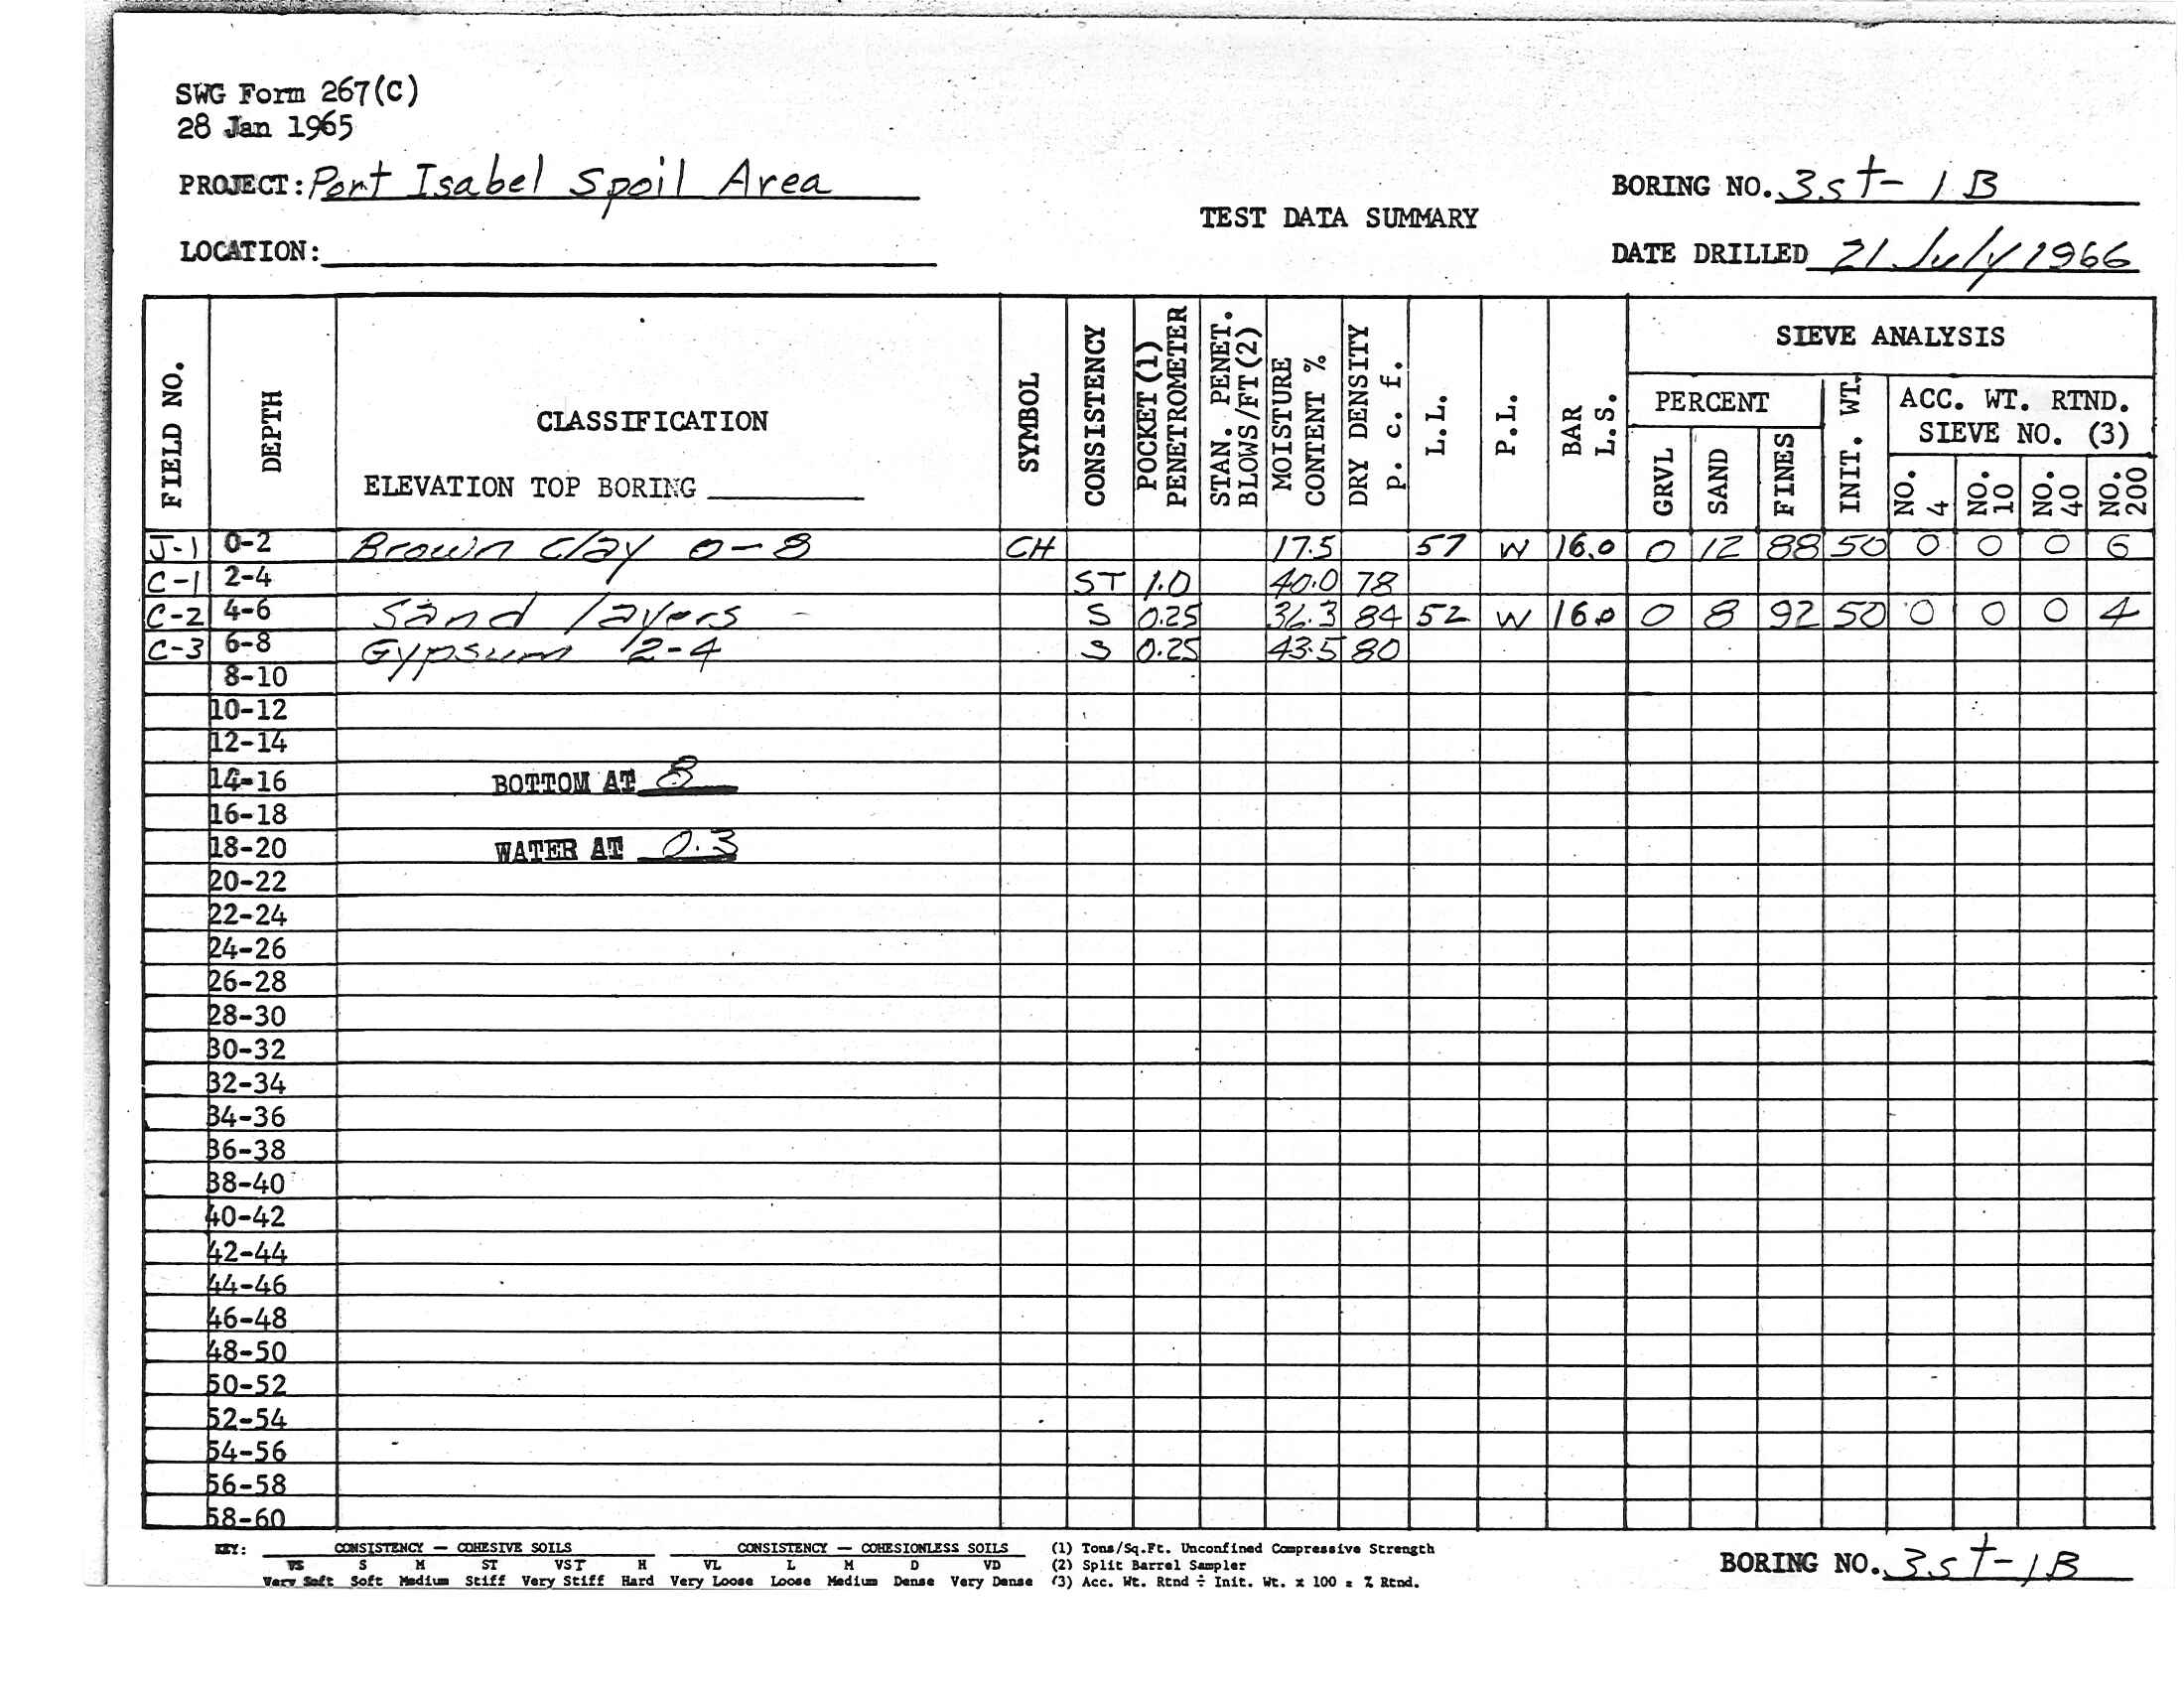 SWG Form 267(C)
28 Jan 1965
PROJECT: Port Isabel Spoil Area
BORING NO. 3st-1B
TEST DATA SUMMARY
LOCATION:
DATE DRILLED 21 July 1966
FIELD NO.
DEPTH
CLASSIFICATION
ELEVATION TOP BORING
SYMBOL
CONSISTENCY
POCKET (1) PENETROMETER
STAN. PENET. BLOWS/FT (2)
MOISTURE CONTENT %
DRY DENSITY p. c. f.
L.L.
P.L.
BAR L.S.
SIEVE ANALYSIS
PERCENT
GRVL
SAND
FINES
INIT. WT.
ACC. WT. RTND.
SIEVE NO. (3)
NO. 4
NO. 10
NO. 40
NO. 200
J-1 0-2 Brown Clay 0-8 CH 17.5 57 W 16.0 0 12 88 50 0 0 0 6
C-1 2-4 ST 1.0 40.0 78
C-2 4-6 Sand layers S 0.25 36.3 84 52 W 16.0 0 8 92 50 0 0 0 4
C-3 6-8 Gypsum 2-4 S 0.25 43.5 80
8-10
10-12
12-14
14-16 BOTTOM AT 8
16-18
18-20 WATER AT 0.3
20-22
22-24
24-26
26-28
28-30
30-32
32-34
34-36
36-38
38-40
40-42
42-44
44-46
46-48
48-50
50-52
52-54
54-56
56-58
58-60
KEY: CONSISTENCY — COHESIVE SOILS CONSISTENCY — COHESIONLESS SOILS (1) Tons/Sq.Ft. Unconfined Compressive Strength
VS S M ST VST H VL L M D VD (2) Split Barrel Sampler
Very Soft Soft Medium Stiff Very Stiff Hard Very Loose Loose Medium Dense Very Dense (3) Acc. Wt. Rtnd ÷ Init. Wt. x 100 = % Rtnd.
BORING NO. 3st-1B